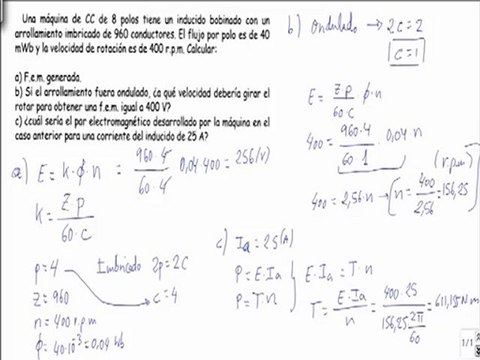 Una máquina de CC de 8 polos tiene un inducido bobinado con un
arrollamiento imbricado de 960 conductores. El flujo por polo es de 40
mWb y la velocidad de rotación es de 400 r.p.m. Calcular:
a) F.e.m. generada.
b) Si el arrollamiento fuera ondulado, ¿a qué velocidad debería girar el
rotar para obtener una f.e.m. igual a 400 V?
c) ¿cuál sería el par electromagnético desarrollado por la máquina en el
caso anterior para una corriente del inducido de 25 A?
a) E = k·ϕ·n = 960·4 / 60·4 0,04 400 = 256 (V)
k = Z·p / 60·c
p = 4 Imbricado 2p = 2c
Z = 960 c = 4
n = 400 r.p.m
ϕ = 40·10⁻³ = 0,04 Wb
b) Ondulado → 2c = 2
c = 1
E = Z p / 60·c ϕ·n
400 = 960·4 / 60·1 0,04 n
(r.p.m)
400 = 2,56·n → n = 400 / 2,56 = 156,25
c) Ia = 25 (A)
P = E·Ia
P = T·n
E·Ia = T·n
T = E·Ia / n = 400·25 / 156,25 2π/60 = 611,15 N.m
1/1